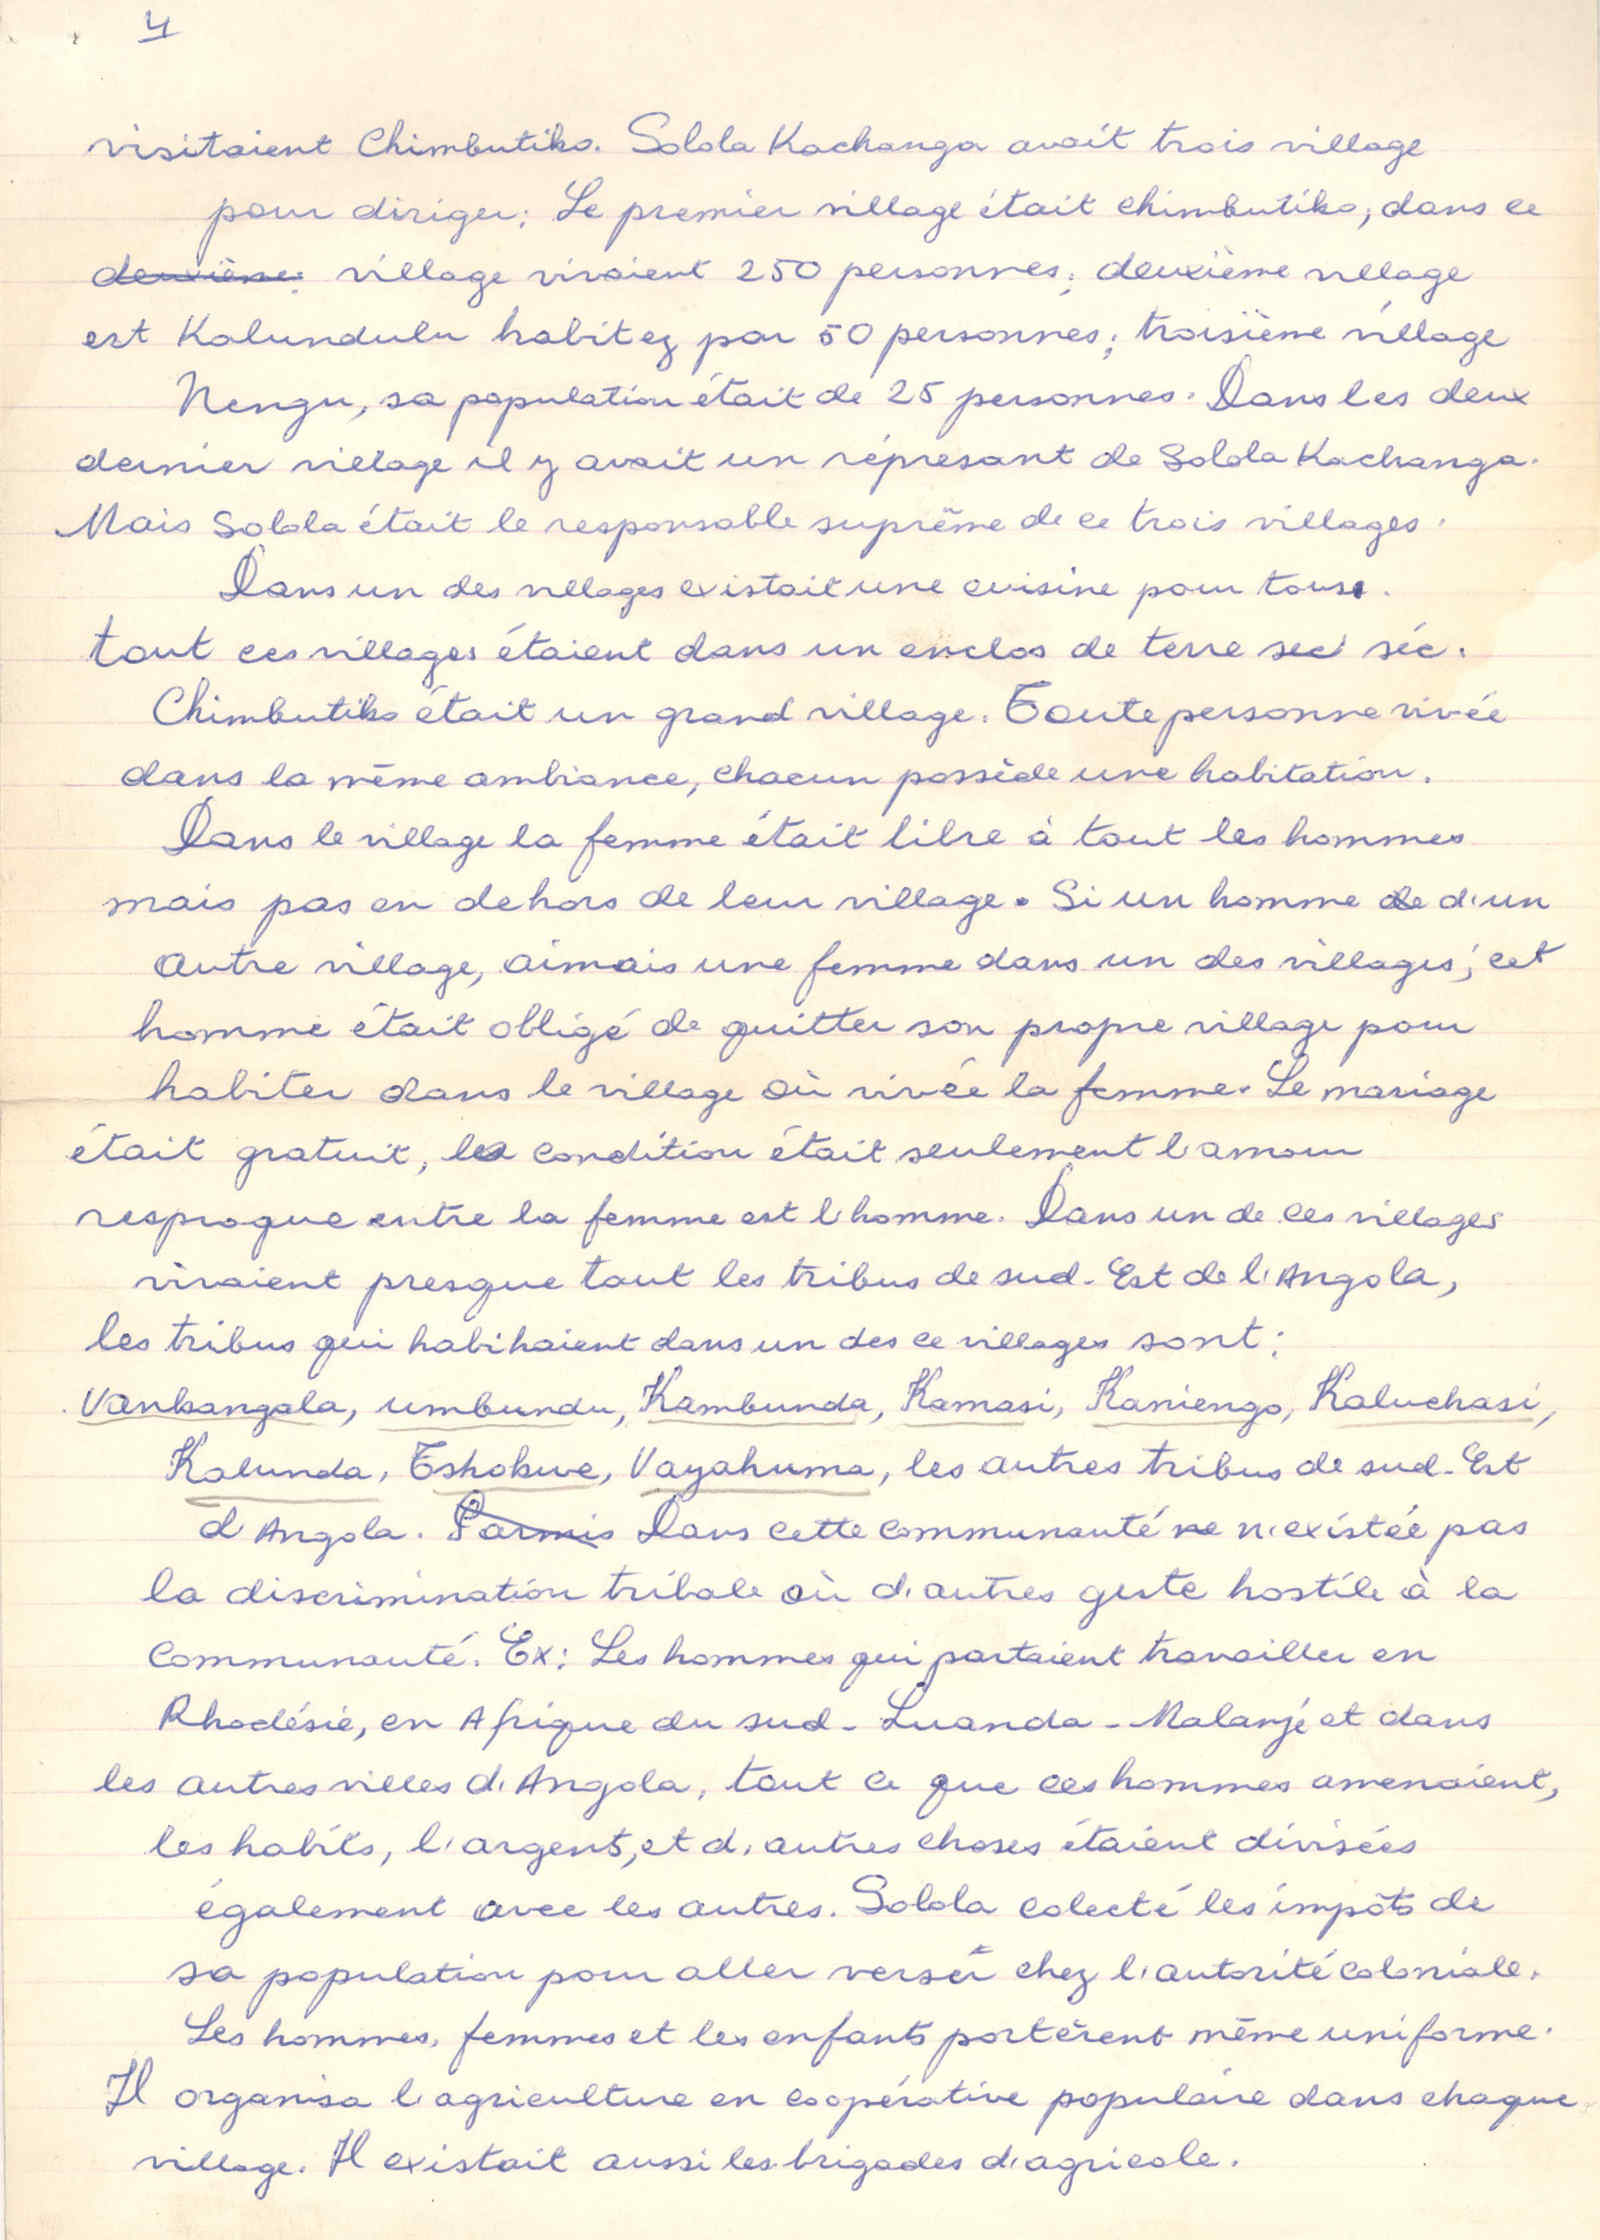 4
visitaient Chimbutiko. Solola Kachanga avait trois village
pour diriger: Le premier village était chimbutiko, dans ce
deuxième: village vivaient 250 personnes; deuxième village
est Kalundulu habitez par 50 personnes; troisième village
Nengu, sa population était de 25 personnes. Dans les deux
dernier village il y avait un réprésant de Solola Kachanga.
Mais Solola était le responsable suprême de ce trois villages.
Dans un des villages existait une cuisine pour tous.
tout ces villages étaient dans un enclos de terre sec séc.
Chimbutiko était un grand village. Toute personne vivée
dans la même ambiance, chacun possède une habitation.
Dans le village la femme était libre à tout les hommes
mais pas en dehors de leur village. Si un homme de d'un
autre village, aimais une femme dans un des villages; cet
homme était obligé de quitter son propre village pour
habiter dans le village où vivée la femme. Le mariage
était gratuit, la condition était seulement l'amour
resproque entre la femme est l'homme. Dans un de ces villages
vivaient presque tout les tribus de sud-Est de l'Angola,
les tribus qui habihaient dans un des ce villages sont:
Vankangala, umbundu, Kambunda, Kamasi, Kaniengo, Kaluchasi,
Kalunda, Tshokwe, Vayahuma, les autres tribus de sud-Est
d'Angola. Parmis Dans cette communauté ne n'existée pas
la discrimination tribale où d'autres geste hostile à la
communauté. Ex: Les hommes qui partaient travailler en
Rhodésie, en Afrique du sud - Luanda - Malanjé et dans
les autres villes d'Angola, tout ce que ces hommes amenaient,
les habits, l'argent, et d'autres choses étaient divisées
également avec les autres. Solola colecté les impôts de
sa population pour aller verser chez l'autorité coloniale.
Les hommes, femmes et les enfants portèrent même uniforme.
Il organisa l'agriculture en coopérative populaire dans chaque
village. Il existait aussi les brigades d'agricole.